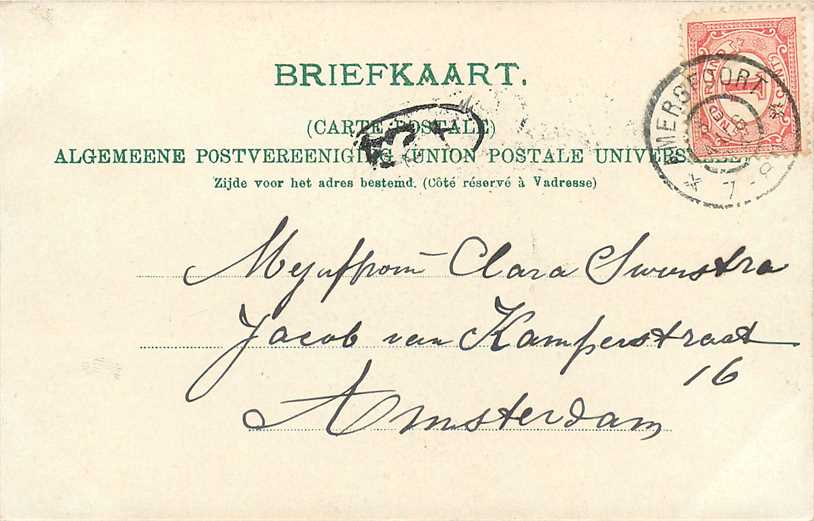 BRIEFKAART.
(CARTE POSTALE)
ALGEMEENE POSTVEREENIGING (UNION POSTALE UNIVERSELLE)
Zijde voor het adres bestemd. (Côté réservé à l'adresse)
AMERSFOORT
Mejuffrouw Clara Swierstra
Jacob van Kamperstraat
16
Amsterdam